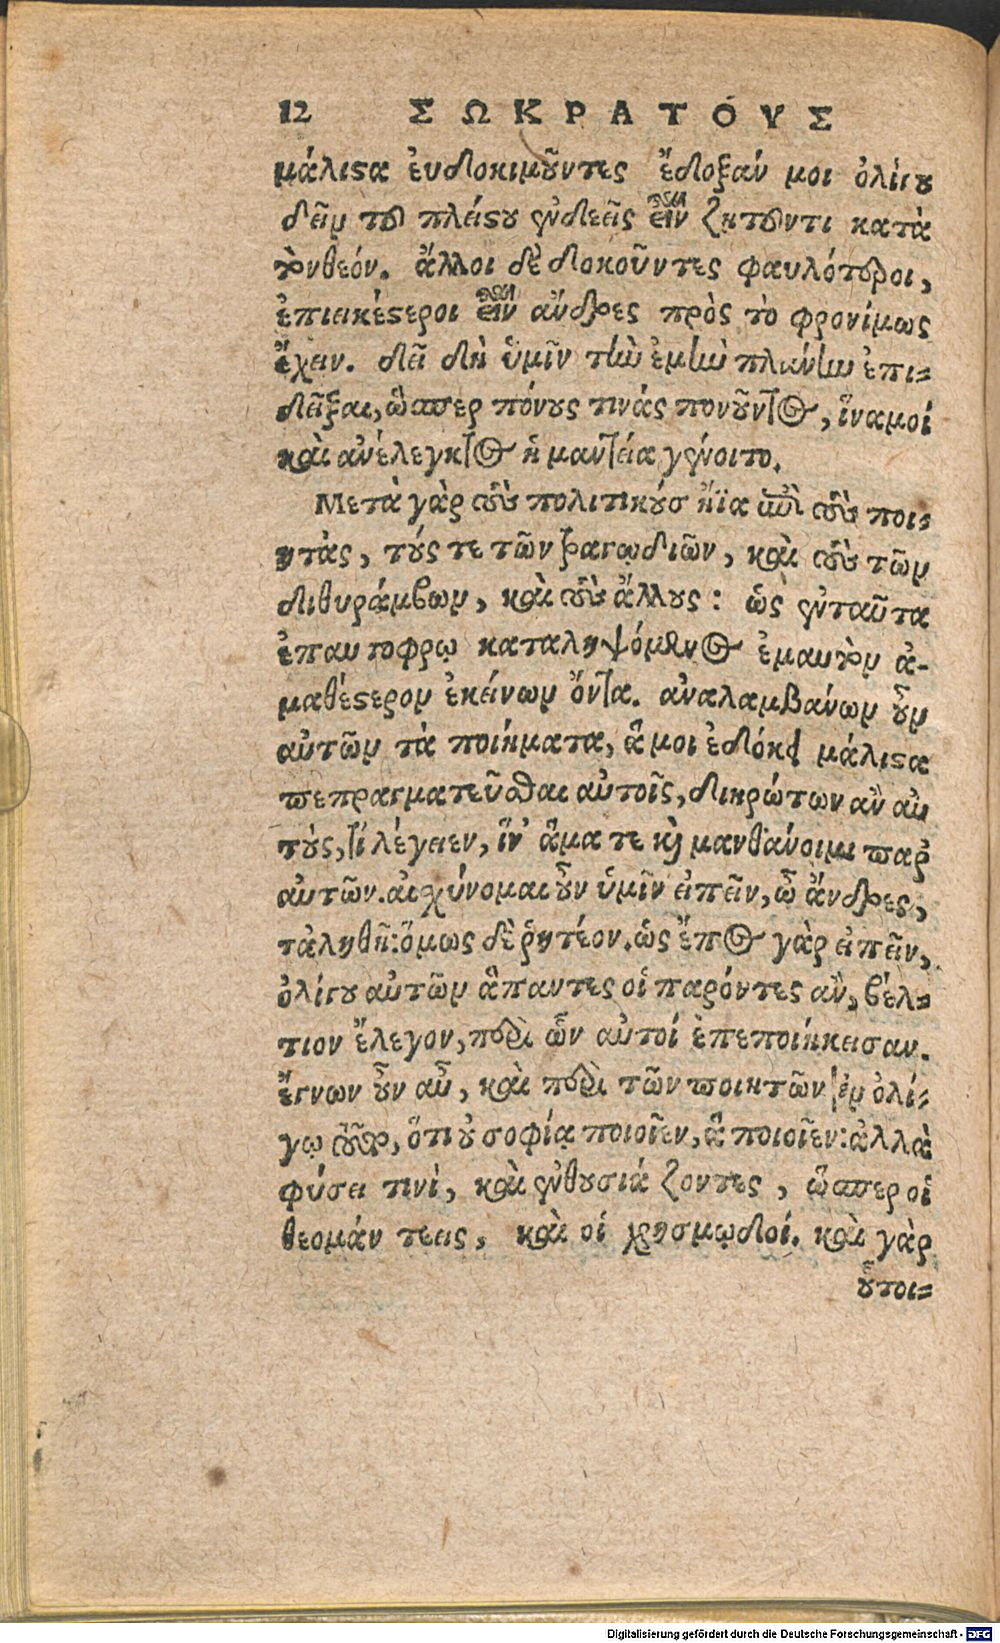 12 ΣΩΚΡΑΤΟΥΣ
μάλιϛα ἐυδοκιμοῦντες ἔδοξάν μοι ὀλίγου
δεῖμ τοῦ πλείϛου ἐνδεεῖς εἶναι ζητοῦντι κατὰ
τὸνθεόν. ἄλλοι δὲ δοκοῦντες φαυλότεροι,
ἐπιεικέϛεροι εἶναι ἄνδρες πρὸς τὸ φρονίμως
ἔχειν. δεῖ δὴ ὑμῖν τὴν ἐμὴν πλάνην ἐπι=
δεῖξαι, ὥσπερ πόνους τινάς πονοῦντος, ἵναμοί
καὶ ἀνέλεγκτος ἡ μαντεία γένοιτο.
Μετὰ γὰρ τοὺς πολιτικούσ ἤϊα ἐπὶ τοὺς ποι=
ητὰς, τούς τε τῶν τραγῳδιῶν, καὶ τοὺς τῶμ
διθυράμβωμ, καὶ τοὺς ἄλλους: ὡς ἐνταῦτα
ἐπαυτοφρῳ καταληψόμενος ἐμαυτὸμ ἀ-
μαθέϛερομ ἐκείνωμ ὄντα. ἀναλαμβάνωμ οὖμ
αὐτῶμ τὰ ποιήματα, ἅ μοι ἐδόκει μάλιϛα
πεπραγματεῦσθαι αὐτοῖς, διηρώτων ἂν αυ
τοὺς, τί λέγειεν, ἵν' ἅμα τε καὶ μανθάνοιμι παρ
αὐτῶν. αἰσχύνομαι οὖν ὑμῖν εἰπεῖν, ὦ ἄνδρες,
τἀληθῆ: ὅμως δὲ ῥητέον. ὡς ἔπος γὰρ εἰπεῖν,
ὀλίγου αὐτῶμ ἅπαντες οἱ παρόντες ἂν, βέλ=
τιον ἔλεγον, περὶ ὧν αὐτοί ἐπεποιήκεισαν.
ἔγνων οὖν αὖ, καὶ περὶ τῶν ποιητῶν ἐμ ὀλί=
γῳ τοῦτο, ὅτι οὐ σοφίᾳ ποιοῖεν, ἃ ποιοῖεν: ἀλλὰ
φύσει τινὶ, καὶ ἐνθουσιάζοντες, ὥσπερ οἱ
θεομάντεις, καὶ οἱ χρησμῳδοί. καὶ γὰρ
οὗτοι=
Digitalisierung gefördert durch die Deutsche Forschungsgemeinschaft - DFG